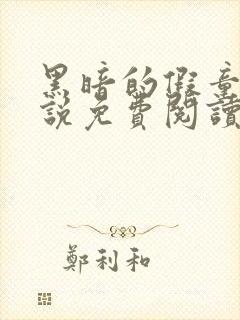 黑暗的假童
說免費閱讀
鄭利和